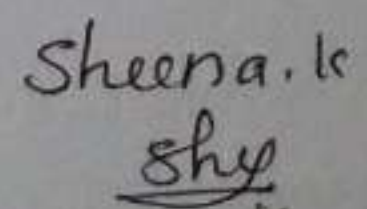 Sheena. k
shy